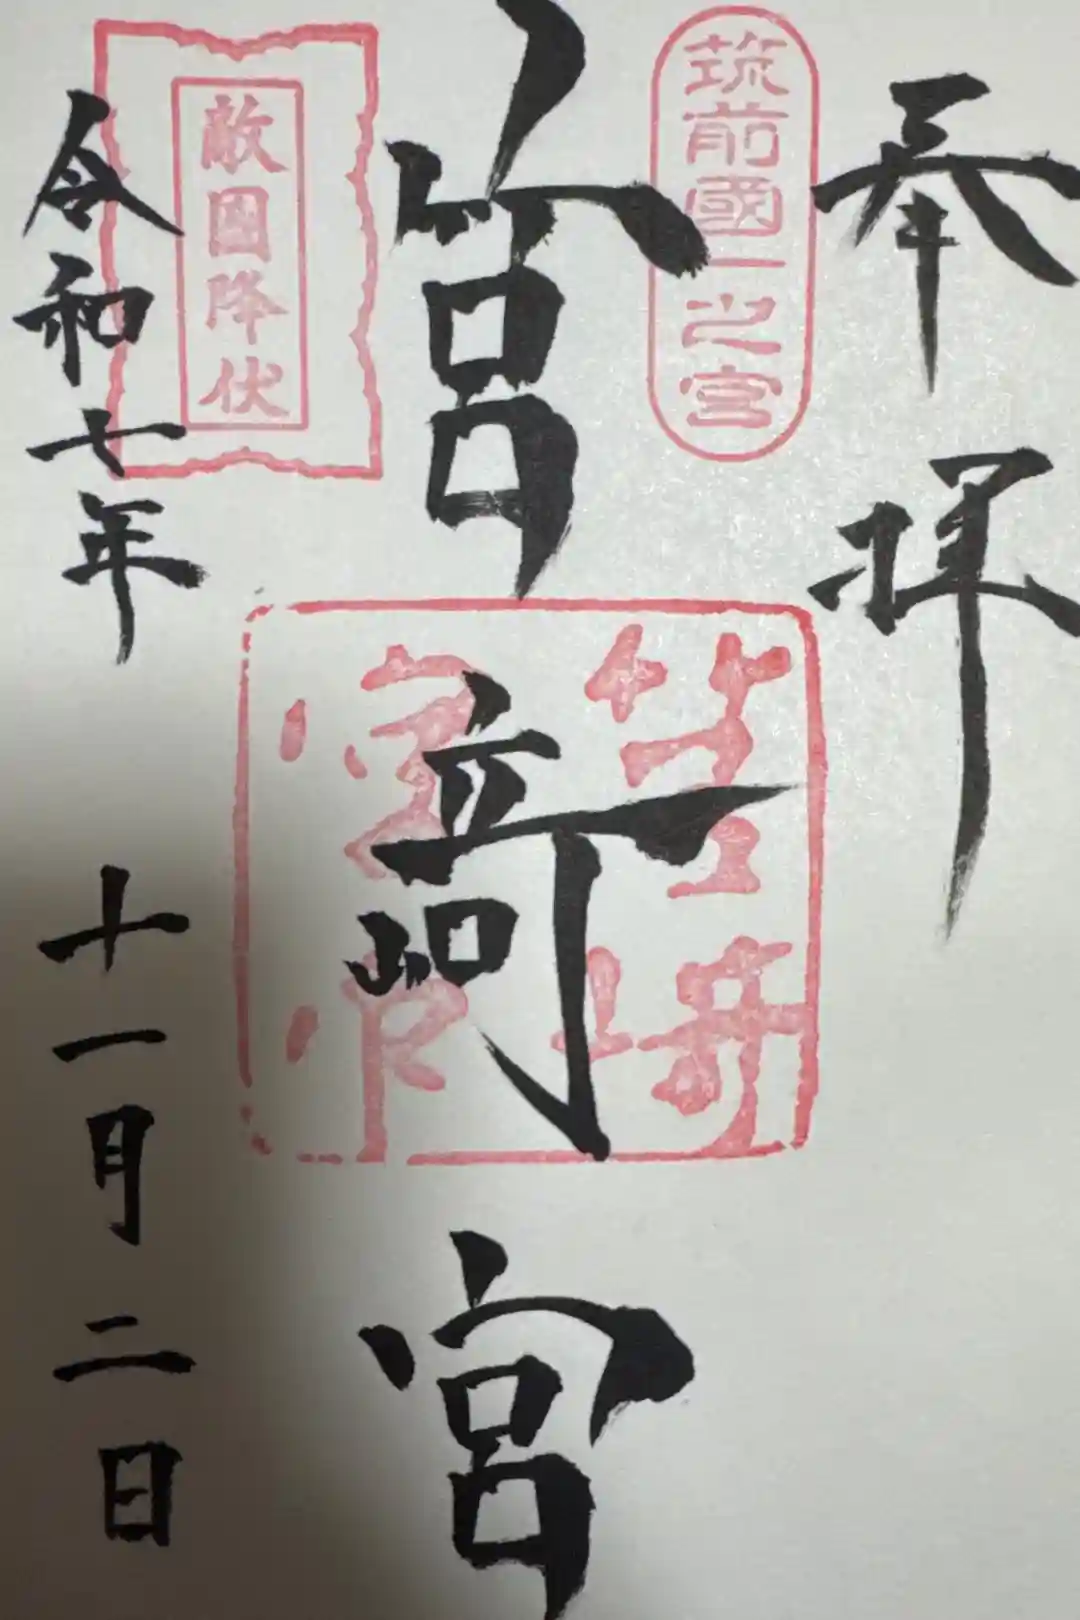 奉拝
筑前國一之宮
筥崎宮
敵國降伏
令和七年十一月二日